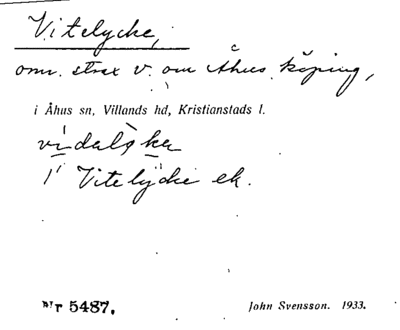 Vitelycke,
omr. strax v. om Åhus köping,
i Åhus sn, Villands hd, Kristianstads l.
i Vitelycke ek.
Nr 5487. John Svensson. 1933.